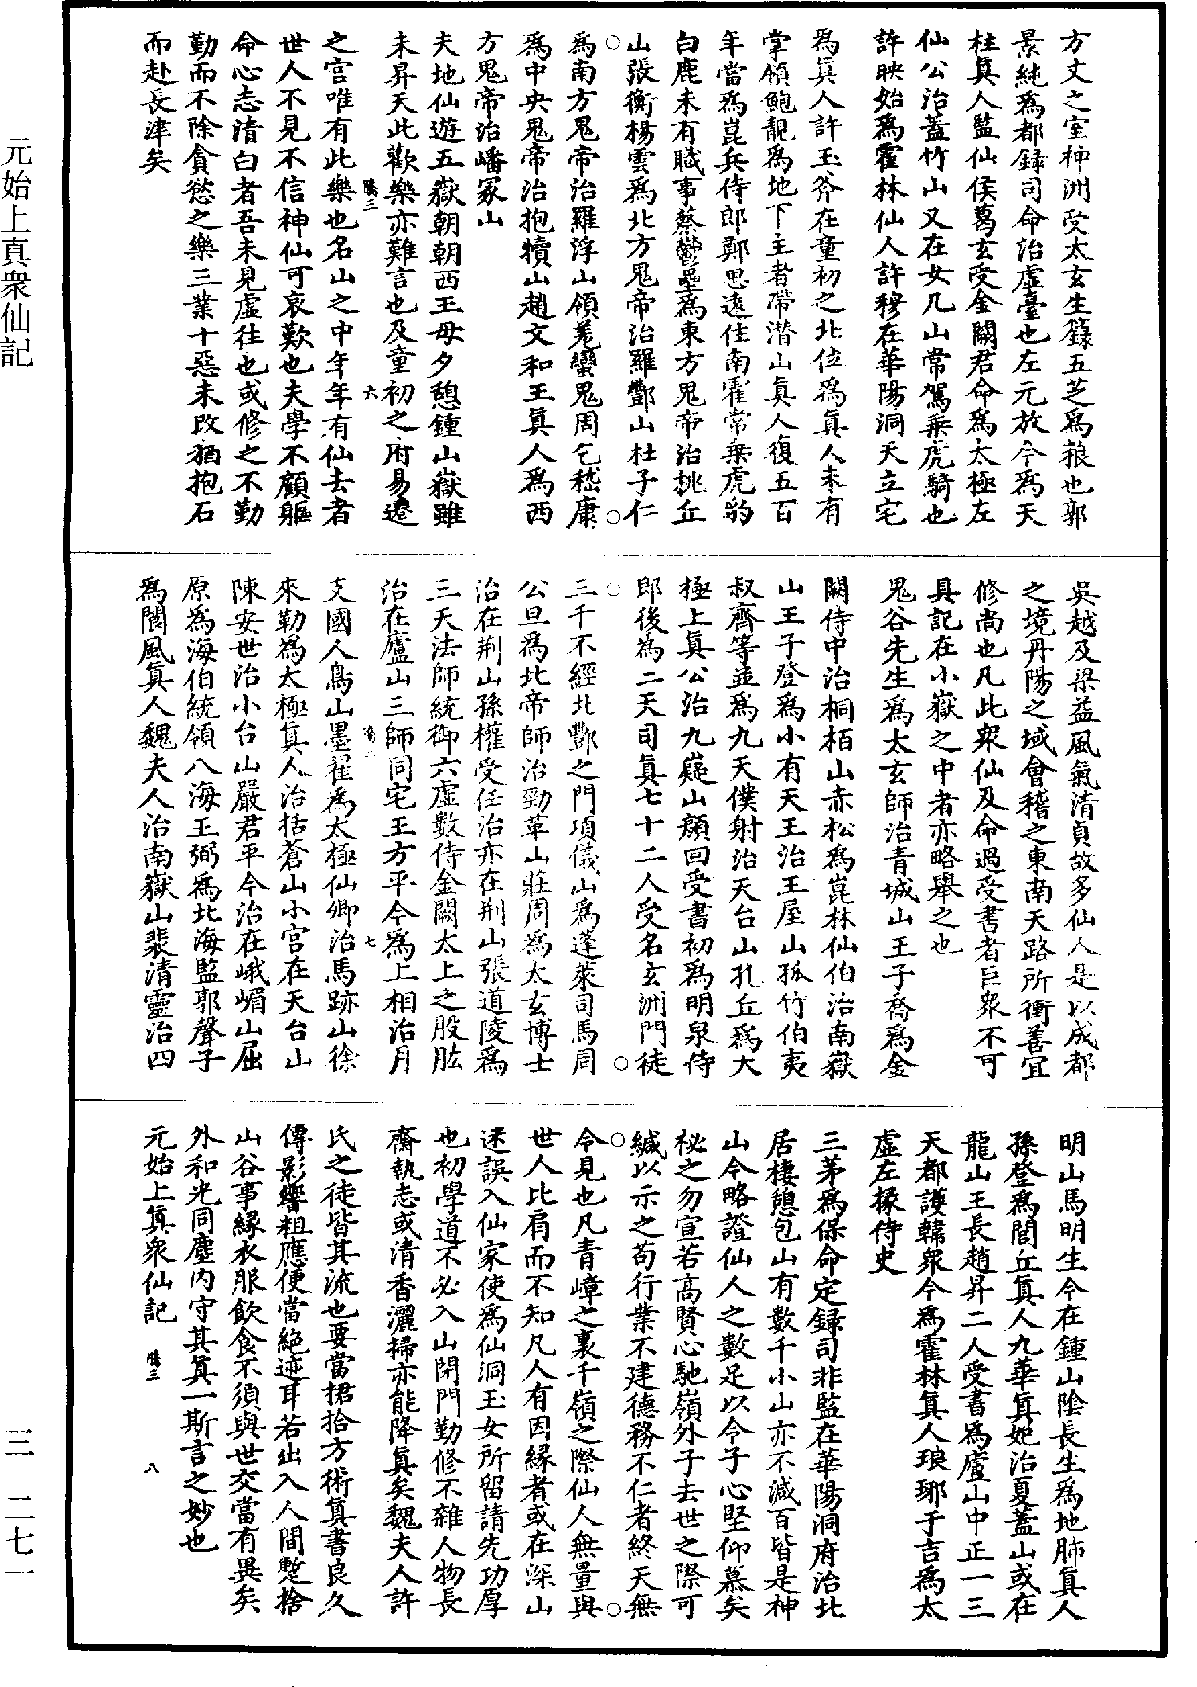 方丈之室神洲受太玄生籙五芝爲粮也郭
景純爲都録司命治虛臺也左元放今爲天
柱真人監仙侯葛玄受金闕君命爲太極左
仙公治蓋竹山又在女几山常駕乗虎騎也
許映始爲霍林仙人許穆在華陽洞天立宅
爲真人許玉斧在童初之北位爲真人未有
掌領鮑靚爲地下主者帶潛山真人復五百
年當爲崑兵侍郎鄭思遠住南霍常乗虎豹
白鹿未有職事蔡鬱壘爲東方鬼帝治桃丘
山張衡楊雲爲北方鬼帝治羅酆山杜子仁
爲南方鬼帝治羅浮山領羗蠻鬼周乞嵇康
爲中央鬼帝治抱犢山趙文和王真人爲西
方鬼帝治嶓冢山
夫地仙遊五嶽朝朝西王母夕憩鍾山嶽雖
未昇天此歡樂亦難言也及童初之府易遷
騰三 六
之宫唯有此樂也名山之中年年有仙去者
世人不見不信神仙可哀歎也夫學不顧軀
命心志清白者吾未見虛往也或修之不勤
勤而不除貪慾之樂三業十惡未改猶抱石
而赴長津矣
吳越及梁益風氣清貞故多仙人是以成都
之境丹陽之域會稽之東南天路所衝善宜
修尚也凡此衆仙及命過受書者巨衆不可
具記在小嶽之中者亦略舉之也
鬼谷先生爲太玄師治青城山王子喬爲金
闕侍中治桐栢山赤松爲崑林仙伯治南嶽
山王子登爲小有天王治王屋山孤竹伯夷
叔齊等並爲九天僕射治天台山孔丘爲太
極上真公治九嶷山顔回受書初爲明泉侍
郎後為二天司真七十二人受名玄洲門徒
三千不經北酆之門項儀山爲蓬萊司馬周
公旦爲北帝師治勁革山莊周爲太玄博士
治在荆山孫權受任治亦在荆山張道陵爲
三天法師統御六虛數侍金闕太上之股肱
治在廬山三師同宅王方平今爲上相治月
七
支國人鳥山墨翟爲太極仙卿治馬跡山徐
來勒為太極真人治括蒼山小宫在天台山
陳安世治小台山嚴君平今治在峨嵋山屈
原爲海伯統領八海王弼爲北海監郭聲子
爲閬風真人魏夫人治南嶽山裴清靈治四
明山馬明生今在鍾山陰長生爲地肺真人
孫登爲閭丘真人九華真妃治夏蓋山或在
龍山王長趙昇二人受書爲廬山中正一三
天都護韓衆今爲霍林真人琅琊于吉爲太
虛左掾侍史
三茅爲保命定録司非監在華陽洞府治北
居棲憩包山有數千小山亦不減百皆是神
山今略證仙人之數足以令子心堅仰慕矣
秘之勿宣若高賢心馳嶺外子去世之際可
緘以示之苟行業不建德務不仁者終天無
今見也凡青嶂之裏千嶺之際仙人無量與
世人比肩而不知凡人有因縁者或在深山
迷誤入仙家使爲仙洞玉女所留請先功厚
也初學道不必入山閉門勤修不雜人物長
齋執志或清香灑掃亦能降真矣魏夫人許
氏之徒皆其流也要當捃拾方術真書良久
傳影響粗應便當絶迹耳若出入人間蹔捨
山谷事縁衣服飲食不須與世交當有異矣
外和光同塵内守其真一斯言之妙也
元始上真衆仙記 騰三 八
元始上真衆仙記
三 二七一